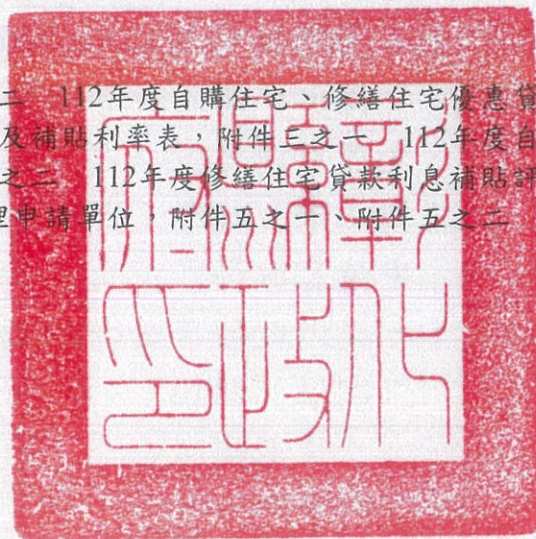 二 112年度自購住宅、修繕住宅優惠貸
及補貼利率表，附件三之一 112年度自
之二 112年度修繕住宅貸款利息補貼評
理申請單位，附件五之一、附件五之二
彰化縣政府印